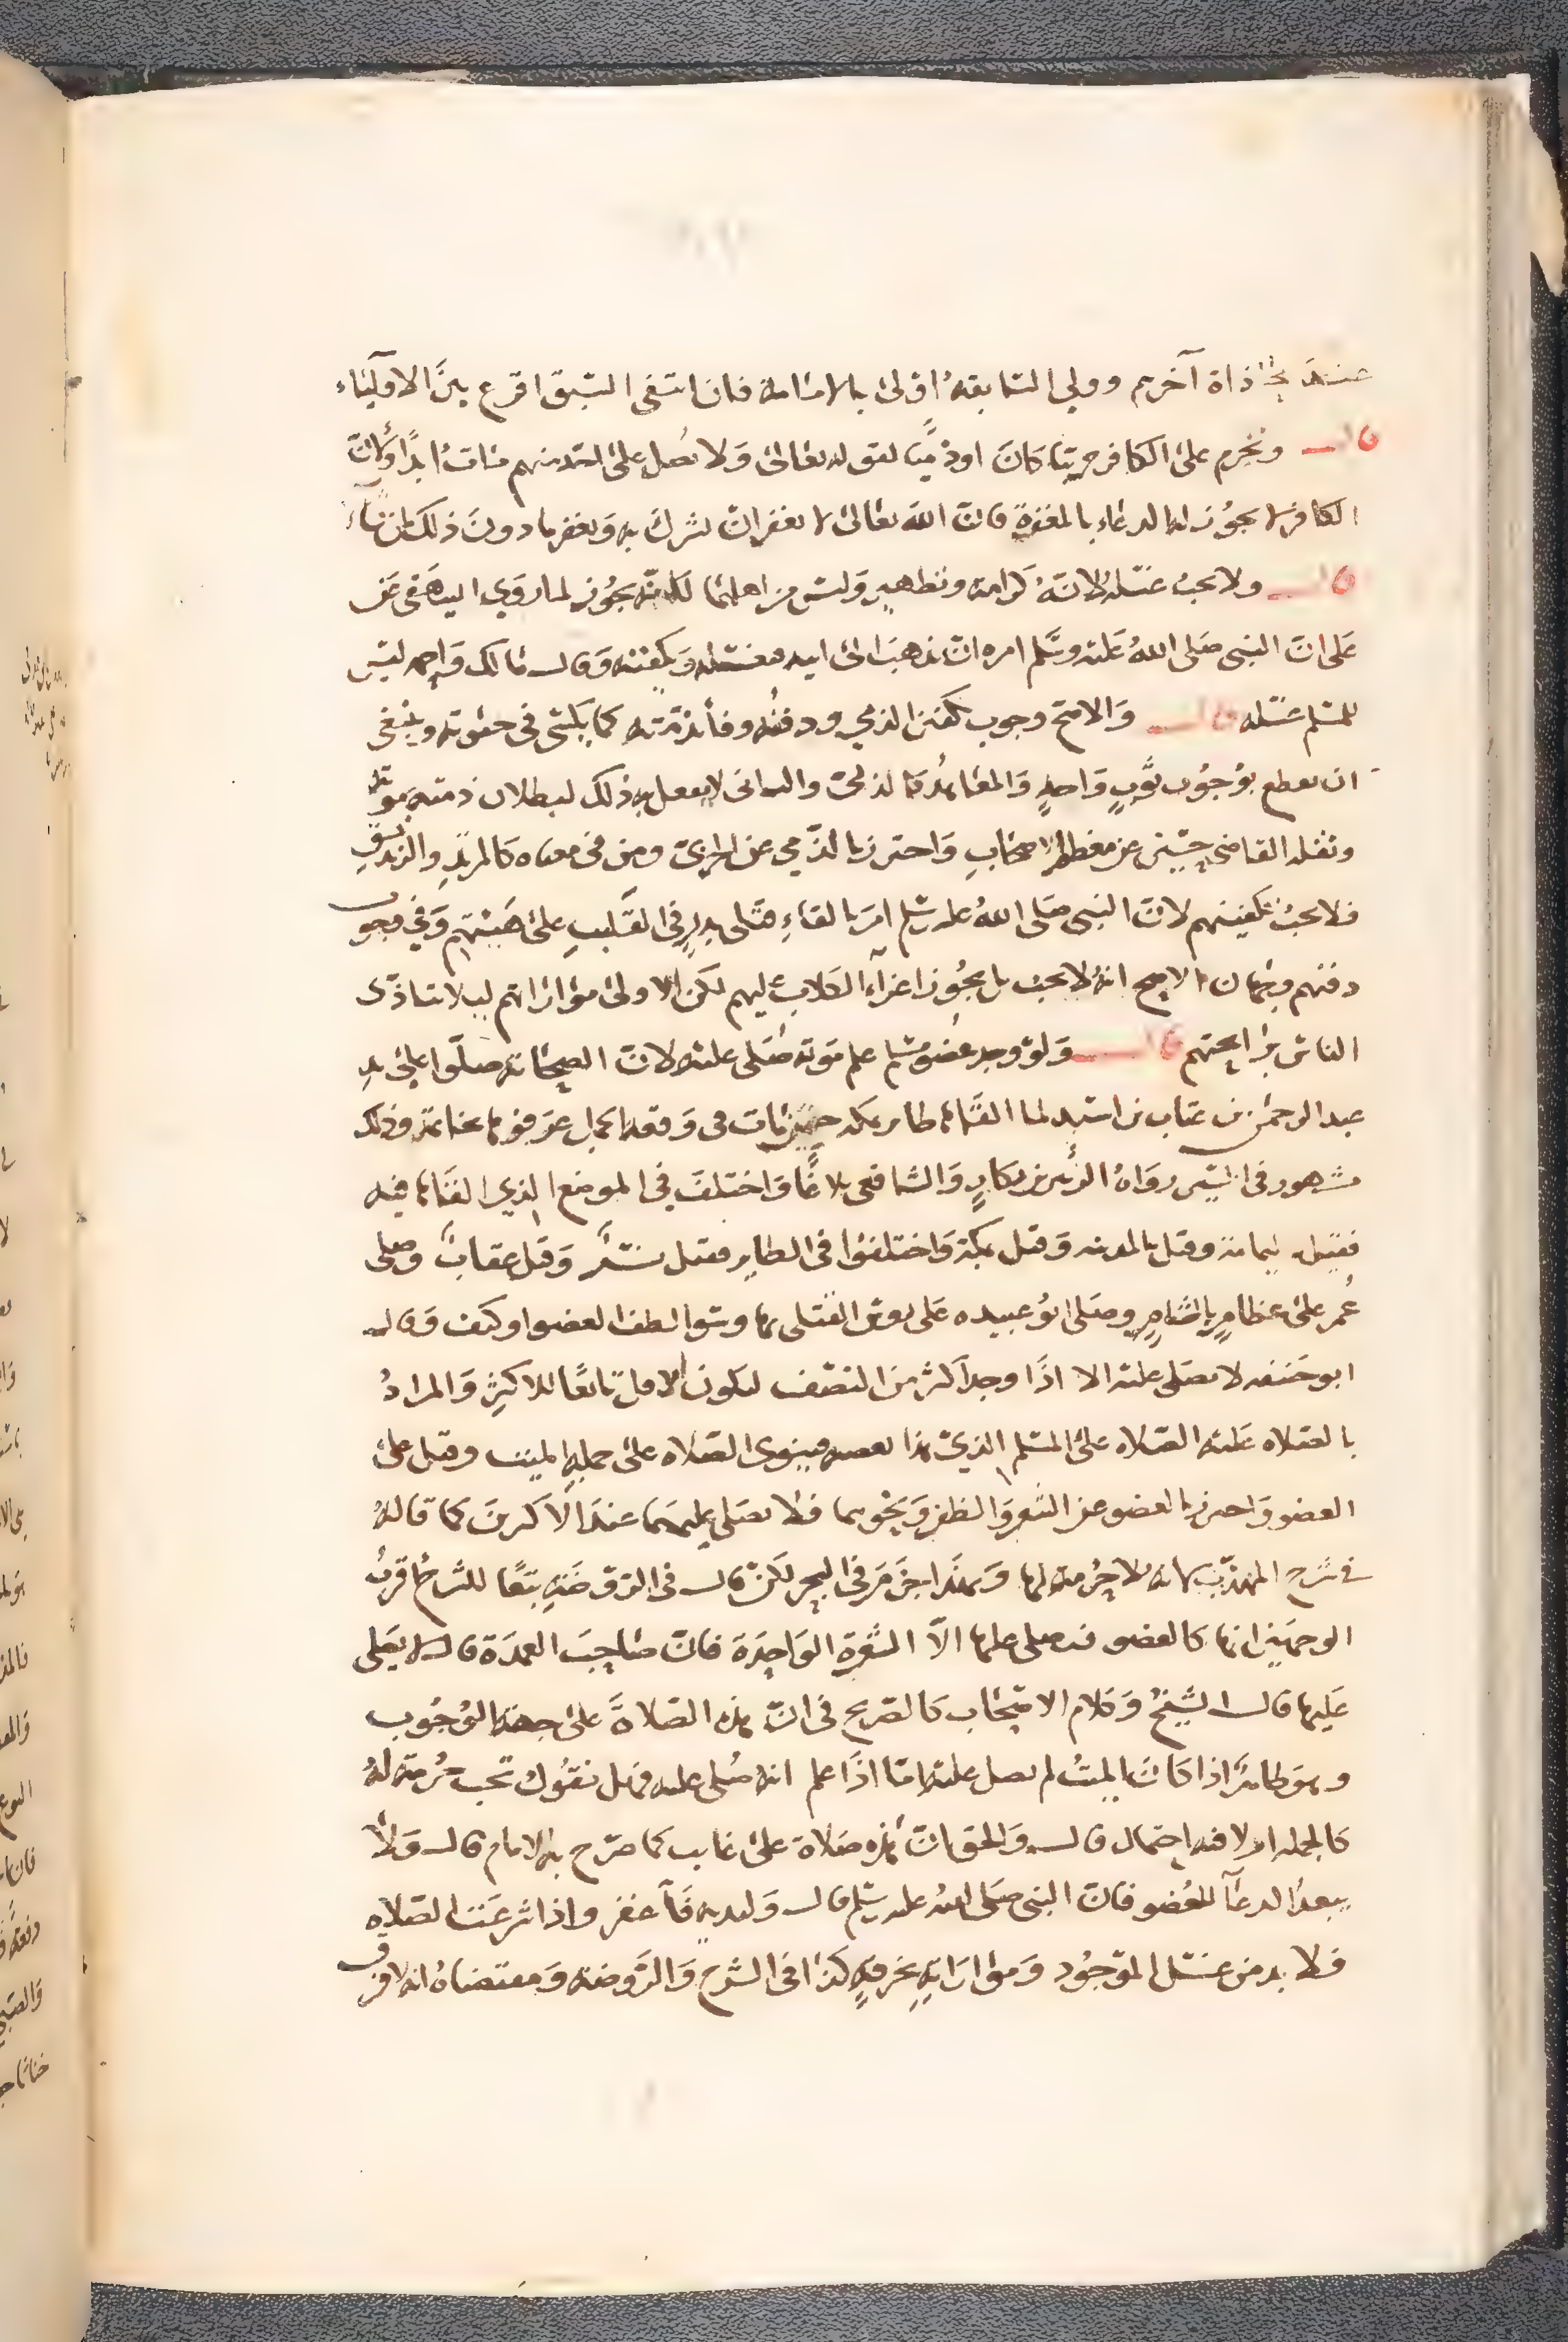 عند محاذاة آخرهم وولي السابقة اولى بالامامة فان انتفى السبق اقرع بين الاوليَاء
قال وتحرم على الكافر حربيا كان او ذميا لقوله تعالى وَلا تصل على احد منهم مات ابدًا ولانّ
الكافر لا يجوز له الدعاء بالمغفرة فانّ الله تعالى لا يغفر ان يشرك به وَيغفر ما دون ذلك لمن يشاء
قال ولا يجب غسله لانّهُ كرامة وتطهير وَليس من اهلهما لكنّه يجوز لما روي البيهقي عَن
عَلى انّ النبي صَلى اللهُ عَليه وسَلم امره ان يذهبَ الى ابيه فيغسله وَيكفنه وَقال مالك وَاحمد ليس
للمسلم غسله قال وَالاصح وجوب تكفين الذمي ودفنُه وفاء بذمته كما يكسى في حيوته وينبغي
ان يقطع بوُجُوب ثوبٍ وَاحدٍ وَالمعَاهد كالذمي والثاني لا يفعل به ذلك لبطلان ذمته بموته
ونقله القاضي حسَين عن معظم الاصحاب وَاحترز بالذّمي عن الحربيّ ومن في معناه كالمرتد والزنديق
فلا يجبُ تكفينهم لانّ النبي صلى اللهُ عليه وسلم امرَ بالقاءِ قتلى بدرٍ في القَليبِ على هَيئتهم وَفي وجوب
دفنهم وجهان الاصح انهُ لا يجب بل يجُوز اغراء الكلاب عليهم لكن الاولى مواراتهم ليلا يتاذى
الناس برايحتهم قال وَلوْ وجد عضو مسلم علم موته صُلى عليه لانّ الصحابة صلّوا على يدِ
عبد الرحمن بن عتاب بن اسيد لما القاها طاير بمكه حين مات في وَقعة الجمل عرفوها بخاتمه وذلك
مشهور في السِيَر روَاهُ الزُبير بن بكارٍ وَالشافعي بلاغًا وَاختلفَ في الموضع الذي القاها فيه
فقيل بيمامة وقيل بالمدينه وَقيل بمكة وَاختلفوا في الطاير فقيل نسرٌ وَقيل عقابٌ وصلى
عُمر على عظامٍ بالشامِ وصَلى ابوُ عبيده عَلى رؤس القتلى بها وسَوا لطف العضو او كبف وَقال
ابو حَنيفه لا يصَلى عليه الا اذَا وجد اكثر من النصف ليكون الاقل تابعًا للاكثر وَالمرادُ
بالصّلاه عَليه الصَلاه على المسلم الذي هذا بعضه فينوي الصّلاه على جملة الميت وقيل على
العضو وَاحترز بالعضو عن الشعر وَالظفر وَنحوهما فلا يصَلى عليهما عندَ الاكثرينَ كما قالهُ
في شرح المهذّب بانه لا حُرمة لها وَبهذَا جزمَ في البحر لكن قال في الرّوضَة تبعًا للشرح اقربُ
الوجهَين انها كالعضو فيصلى عليها الاّ الشعرة الوَاحدَة فانّ صَاحبَ العمدَة قال لا يصَلى
عَليها قال الشيخُ وَكلام الاصحَاب كالصَريح في انّ هذه الصَلاةَ على جهة الوُجُوب
وهوَ ظاهرٌ اذا كانَ الميتُ لم يصل عليه امّا اذَا علم انه صُلى عليه فهل نقوُل تجب حُرمة لهُ
كالجمله ام لا فيه احتمال قال وَالحق انّ هذه صَلاة على غايب كما صَرّح به الامام قال وَلا
يبعد الدعآ للعضو فانّ النبي صَلى الله عليه وسَلم قال وَليديه فَاغفر واذا شرعَت الصّلاه
فلا بد من غسل الموَجُود وَموَارَاتِه بخرقةٍ كذا في الشرح وَالرّوضه وَمقتضاهُ انه لا فرق